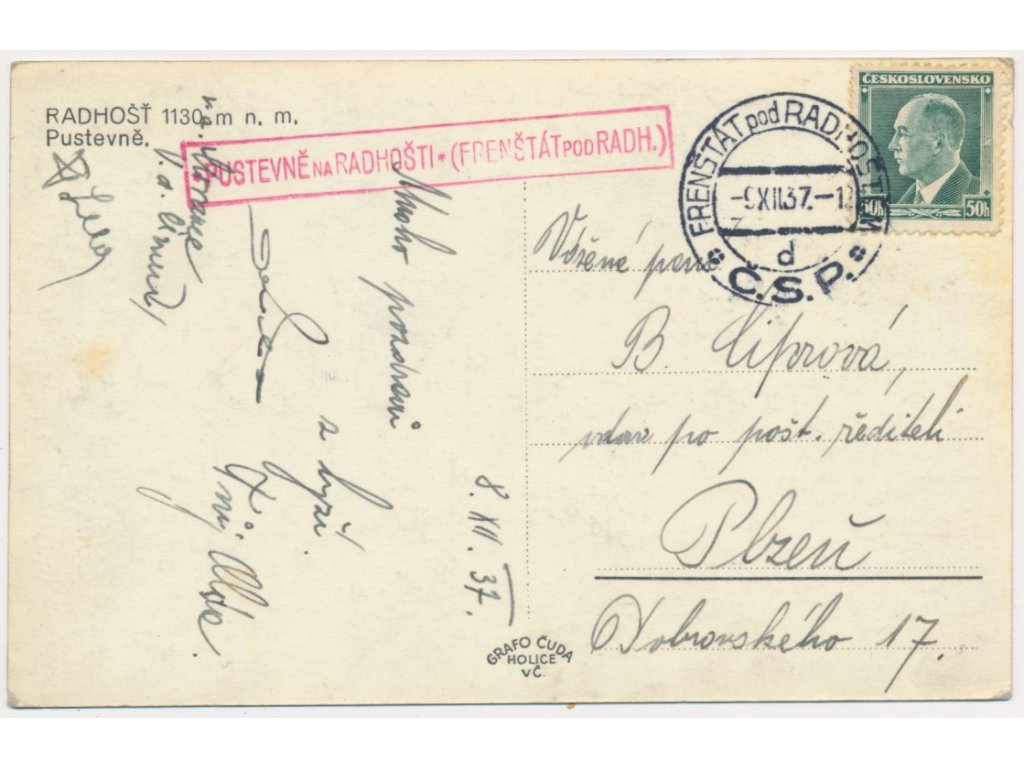 RADHOŠŤ 1130 m n. m.
Pustevně.
PUSTEVNĚ NA RADHOŠTI * (FRENŠTÁT POD RADH.)
FRENŠTÁT pod RADHOŠTĚM
-9.XII.37.-12
d
Č.S.P.
ČESKOSLOVENSKO
50h 50h
Mnoho pozdravů
z lyží.
8. XII. 37.
Vážená paní
B. Liprová,
vdov po pošt. řediteli
Plzeň
Dobrovského 17.
GRAFO ČUDA
HOLICE
VČ.